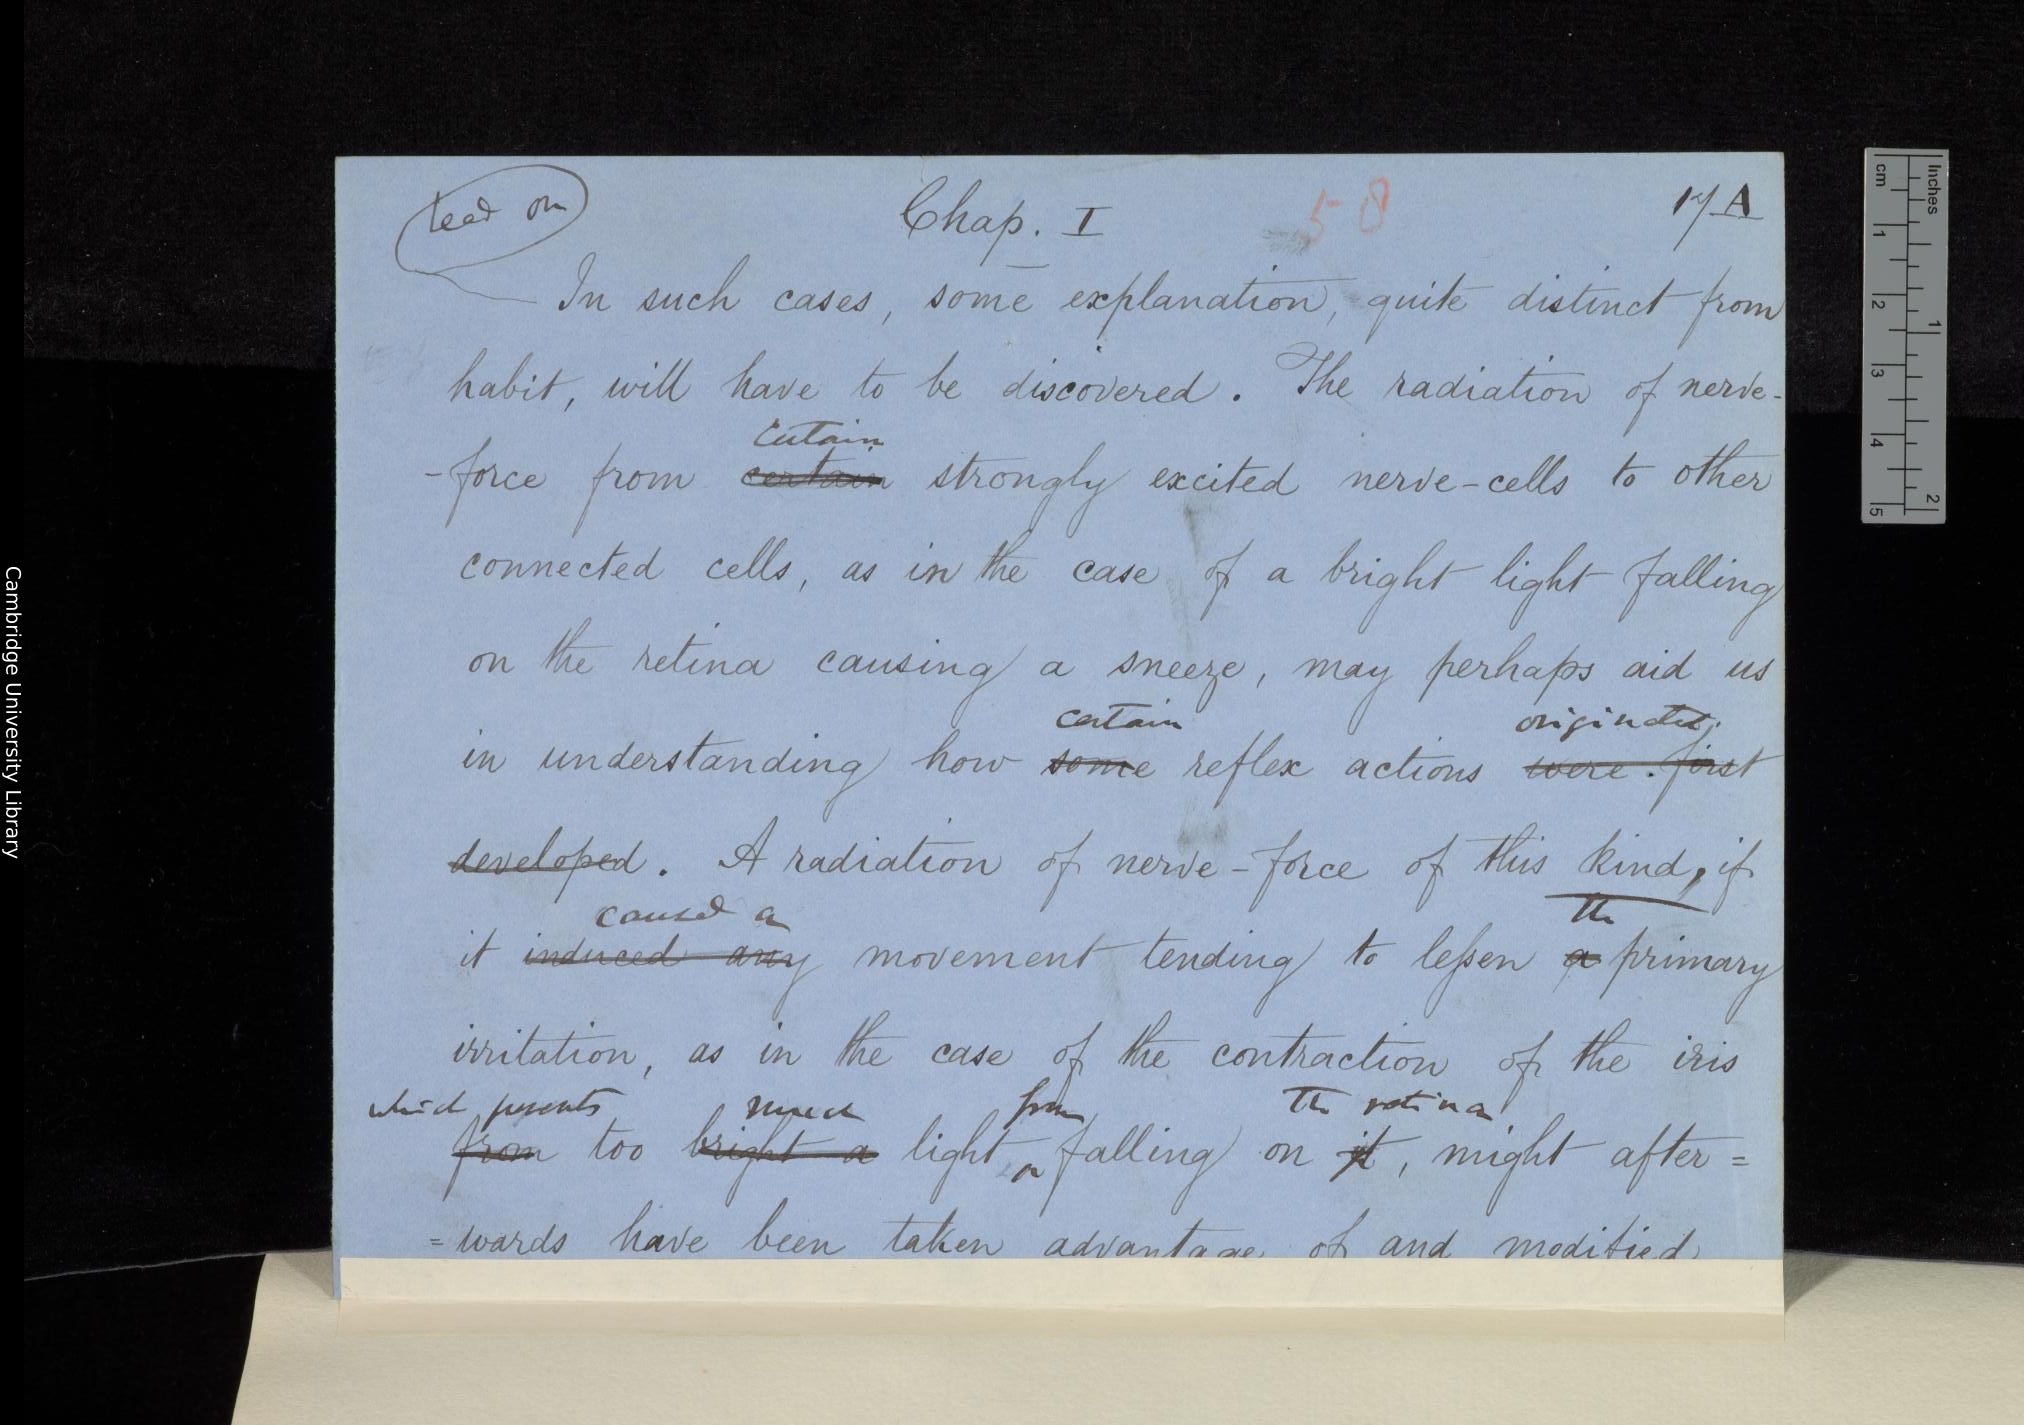 lead on
Chap. I
58
17 A
In such cases, some explanation, quite distinct from
habit, will have to be discovered. The radiation of nerve-
certain
-force from certain strongly excited nerve-cells to other
connected cells, as in the case of a bright light falling
on the retina causing a sneeze, may perhaps aid us
certain originated.
in understanding how some reflex actions were first
developed. A radiation of nerve-force of this kind, if
caused a the
it induced any movement tending to lessen a primary
irritation, as in the case of the contraction of the iris
which prevents much from the retina
from too bright a light falling on it, might after=
=wards have been taken advantage of and modified
Cambridge University Library
cm 1 2 3 4 5
Inches 1 2